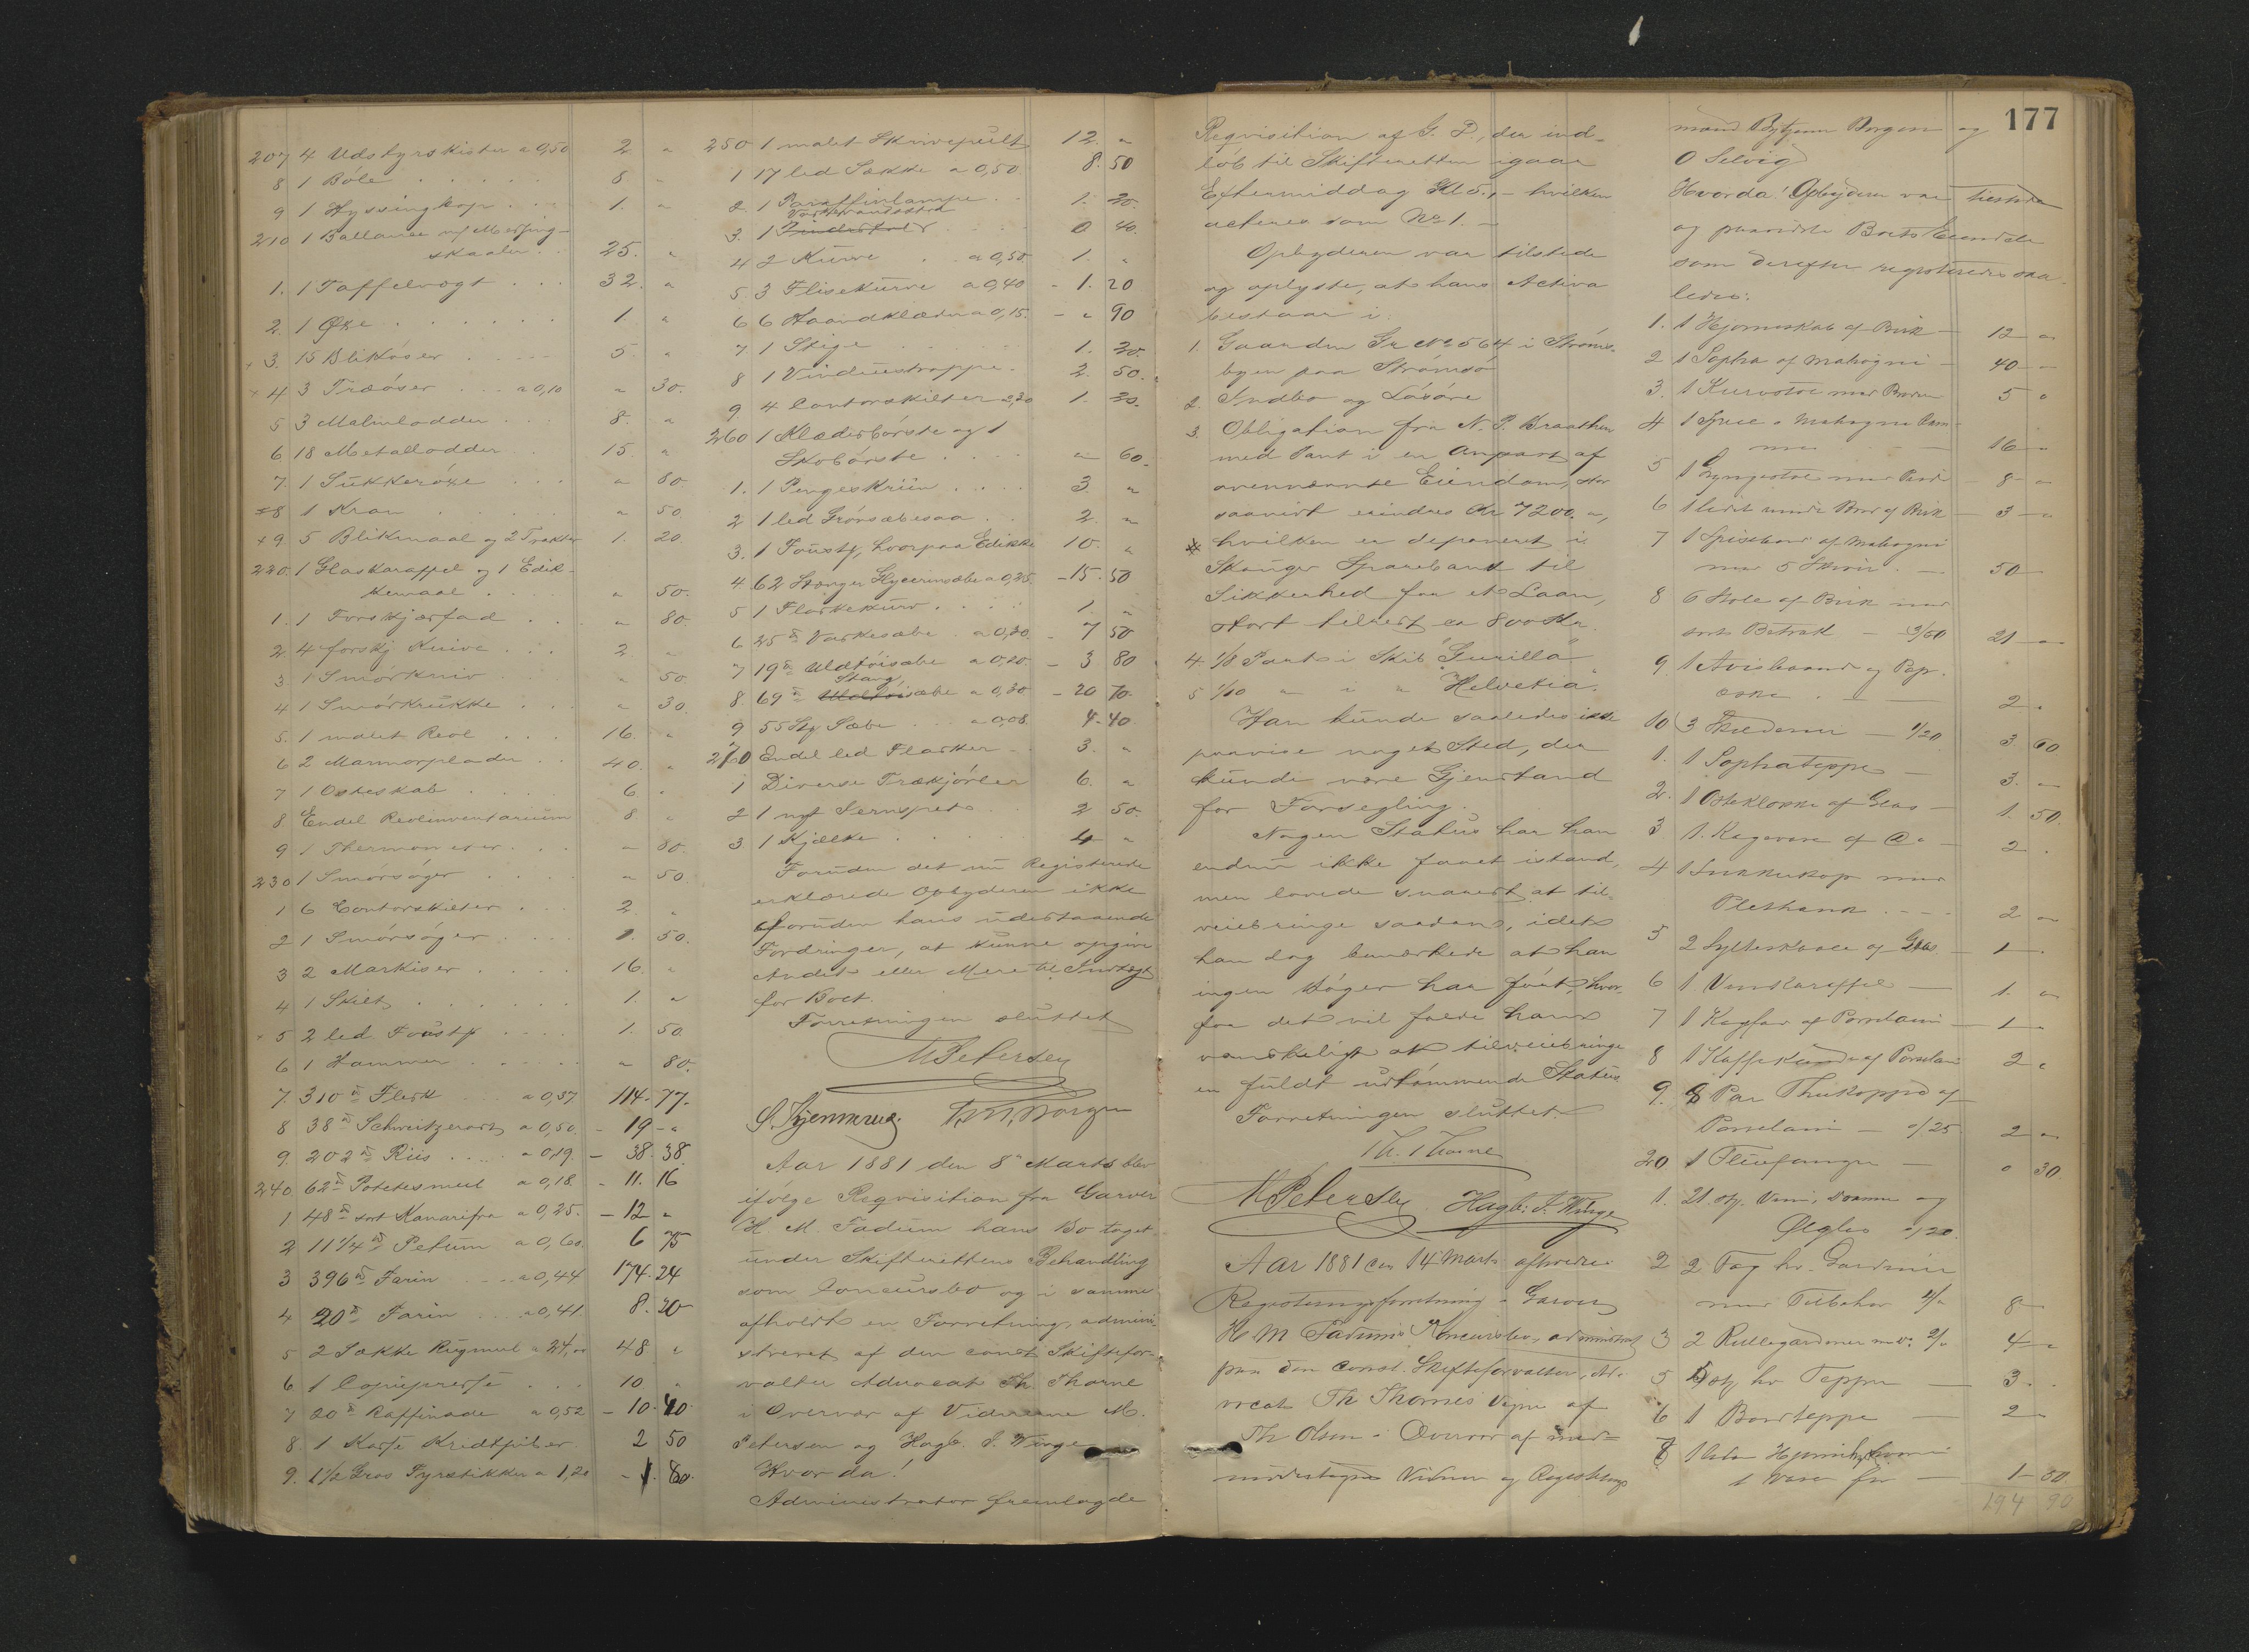 207 4 Udstyrskister a 0,50 2 "
8 1 Böle . . . . 8 "
9 1 Hyssingkop . . . 1. "
210 1 Ballance m/ Messing-
skaaler . . 25. "
1. 1 Taffelvægt . . . 32. "
2. 1 Øxe . . . . . 1. "
3. 15 Blikøser . . . 5. "
4 3 Træøser . . . a 0,10 " 30.
5 3 Malmlodder . . . 8. "
6 18 Metallodder . 15. "
7. 1 Sukkerøxe . . . " 80.
8 1 Kran . . . . " 50.
9. 5 Blikmaal og 2 Trakter 1. 20
220. 1 Glaskaraffel og 1 Edik-
kemaal . . . . " 50.
1. 1 Forskjærfad . . . " 80.
2. 4 forskj Knive . . . 2. "
3 1 Smörkniv . . . " 50
4 1 Smörkrukke . . . " 30.
5. 1 malet Reol . . . 16. "
6 2 Marmorplader . . 40. "
7 1 Osteskab . . . . 6. "
8 Endel Reolinventarium 8 "
9 1 Thermometer . . . " 80.
230 1 Smörsøger . . . " 50.
1 6 Contorskilter . . . 2. "
2 1 Smörsøger . . . . 50.
3 2 Markiser . . . . 16. "
4 1 Skilt . . . . . . 1. "
5 2 led Fustg . . . . 1. 50.
6 1 Hammer . . . . . " 80.
7. 310 ℔ Flesk . . . a 0,37 114. 77.
8 38 ℔ Schweitzerost a 0,50. - 19 - "
9. 202 ℔ Riis . . . . a 0,19. - 38. 38.
240. 62 ℔ Potetesmeel a 0,18. - 11. 16
1 48 ℔ sort Kanarifrø a 0,25. - 12 "
2 11 1/4 ℔ Petum a 0,60. 6 75
3 396 ℔ Farin . . . a 0,44 174. 24
4 20 ℔ Farin . . . a 0,41. 8. 20
5 2 Sække Rugmeel a 24,00 48 "
6. 1 Copiepresse . . . 10 "
7 20 ℔ Raffinade a 0,52 - 10. 40.
8. 1 Karse Kridtpiber 2 50
9. 1 1/2 Gros Fyrstikker a 1,20 - 1. 80.
250 1 malet Skrivepult 12. "
1 17 led Sække a 0,50. 8. 50
2. 1 Paraffinlampe . . 1. 20.
Vaskevandsstol
3. 1 . . . . 0 40.
4 2 Kurve . . a 0,50 1. "
5 3 Flisekurve a 0,40 - 1. 20
6 6 Haandklæder a 0,15. - " 90
7. 1 Stige . . . . . 1. 20.
8 1 Vinduestrappe . 2. 50.
9. 4 Contorskilter a 0,30 1. 20.
260 1 Klædesbørste og 1
Skobørste . . . . " 60.
1. 1 Pengeskriin . . . . 3. "
2 1 led Grønsæbesaa . . 2. "
3. 1 Fustg, hvorpaa Edikke 10. "
4 62 Stænger Glycerinsæbe a 0,25. - 15. 50
5 1 Flaskekurv . . . . 1. "
6 25 ℔ Vaskesæbe . a 0,30. - 7 50
7 19 ℔ Uldtöisæbe a 0,20. - 3 80
Stang,
8. 69 ℔ sæbe a 0,30 - 20 70.
9 55 Stg Sæbe . . . a 0,08. 4. 40.
270 Endel led Flasker . . 3. "
1 Diverse Trækjørler 6. "
2 1 nyt Jernspet . . 2 50.
3 1 Kjælke . . . . . 4 "
Foruden det nu Registerede
erklærede Opbyderen ikke
foruden hans udestaaende
Fordringer, at kunne opgive
Andet eller Mere til Indtægt
for Boet.
Forretningen sluttet
M Petersen
Aar 1881 den 8de Marts blev
ifølge Reqvisition fra Garver
H. M. Fadum hans Bo taget
under Skifterettens Behandling
som Concursbo og i samme
afholdt en Forretning, admini-
streret af den const Skiftefor-
valter Advocat Th. Thorne
i Overvær af Vidnerne M.
Petersen og Hagb. J. Winge
Hvor da!
Administrator fremlagde
177
Reqvisition af G. D., der ind-
løb til Skifteretten igaar
Eftermiddag Kl 5, - hvilken
acteres som No 1. -
Opbyderen var tilstede
og oplyste, at hans Activa
bestaar i:
1. Gaarden Gr No 564 i Strøms-
byen paa Strømsø
2. Indbo og Løsøre
3. Obligation fra N. P. Braathen
med Pant i en Anpart af
ovennævnte Eiendom, stor
saavidt erindres Kr 7200. ",
hvilken er deponeret i
Skouger Sparebank til
Sikkerhed for et Laan,
stort tilrest ca 800 Kr.
4 1/8 Part i Skib "Gurilla"
5 1/10 " i " "Helvetia".
Han kunde saaledes ikke
paavise noget Sted, der
kunde være Gjenstand
for Forsegling.
Nogen Status har han
endnu ikke faaet istand,
men lovede snarest at til-
veiebringe saadan, idet
han dog bemærkede at han
ingen Bøger har ført, hvor-
for det vil falde ham
vanskeligt at tilveiebringe
en fuldt udtømmende Status
Forretningen sluttet
Th. Thorne
M Petersen Hagb: J. Winge
Aar 1881 den 14 Marts afholdtes
Registeringsforretning i Garver
H M Fadums Koncursbo, administret
paa den const. Skifteforvalter, Ad-
vocat Th Thornes Vegne af
Th Olsen i Overvær af med-
undertegnede Vidner og Registerings
mænd Bytjener Borgen og
O Selvig
Hvorda! Opbyderen var tilstede
og paaviste Boets Eiendele
som derefter registeredes saa-
ledes:
1. 1 Hjørneskab af Birk - 12 "
2 1 Sopha af Mahogni - 40 "
3. 1 Kurvstol med Puder 5 "
4 1 Speil i Mahogni Ram-
me - 16 "
5 1 Gyngestol med Pude - 8 "
6 1 lidet rundt Bord af Birk - 3 "
7 1 Spisebord af Mahogni
med 5 Skiver. - 50
8 6 Stole af Birk med
sort Betræk - 3/50 21 "
9. 1 Avisbaand og Pap-
æske . - 2.
10 3 Skilderier - 1/20 3. 60
1. 1 Sophateppe 3. "
2. 1 Osteklokke af Glas - 1. 50.
3 1. Kagevase af Do - 2.
4 1 Sukkerkop med
Pletshank . . . 2 "
5 2 Sylteskaale af Glas - 1 -
6 1. Vandkaraffel - 1. "
7 1 Kagefad af Porcelain - 1 "
8 1 Kaffekande af Porcelain 2 "
9. 8 Par Thekopper af
Porcelain - "/25 2 "
20 1 Fluefanger - " 30.
1. 21 stk. Viin, Drams og
Ølglas "/20
2 2 Fag hv. Gardiner
med Tilbehør 4/" 8 -
3 2 Rullegardiner m.v: 2/" 4 -
5 5 stk hv Tepper - 3.
6 1 Bordteppe - 2 "
7 1
1 Vase for - 1 - 00.
194 90